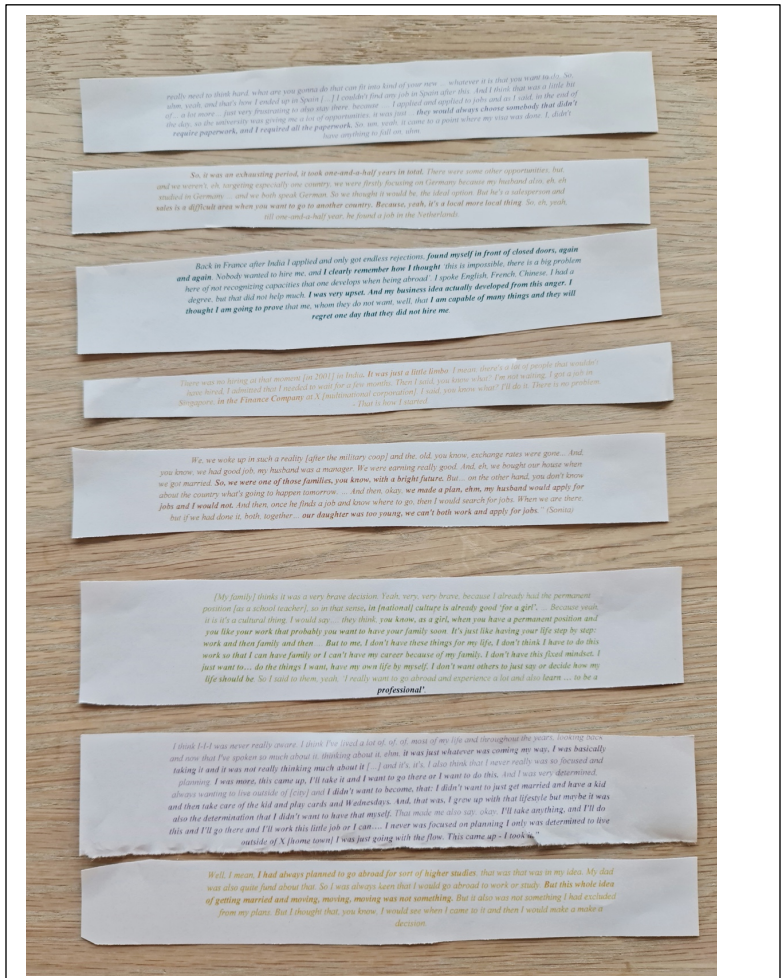 really need to think hard, what are you gonna do that can fit into kind of your new ... whatever it is that you want to do. So,
uhm, yeah, and that's how I ended up in Spain [...] I couldn't find any job in Spain after this. And I think that was a little bit
of .. a lot more ... just very frustrating to also stay there, because ... I applied and applied to jobs and as I said, in the end of
the day, us the university was giving me a lot of opportunities, it was just ... they would always choose somebody that didn't
require paperwork, and I required all the paperwork. So, um, yeah, it came to a point where my visa was done. I, didn't
have anything to fall on, uhm.
So, it was an exhausting period, it took one-and-a-half years in total. There were some other opportunities, but
and we weren't, eh, targeting especially one country, we were firstly focusing on Germany because my husband also, eh, eh
studied in Germany ... and we both speak German. So we thought it would be, the ideal option. But he's a salesperson and
sales is a difficult area when you want to go to another country. Because, yeah, it's a local more local thing. So, eh, yeah,
till one-and-a-half year, he found a job in the Netherlands.
Back in France after India I applied and only got endless rejections, found myself in front of closed doors, again
and again. Nobody wanted to hire me, and I clearly remember how I thought 'this is impossible, there is a big problem
here of not recognizing capacities that one develops when being abroad'. I spoke English, French, Chinese, I had a
degree, but that did not help much. I was very upset. And my business idea actually developed from this anger. I
thought I am going to prove that me, whom they do not want, well, that I am capable of many things and they will
regret one day that they did not hire me.
There was no hiring at that moment [in 2001] in India. It was just a little limbo. I mean, there's a lot of people that wouldn't
have hired, I admitted that I needed to wait for a few months. Then I said, you know what? I'm not waiting, I got a job in
Singapore, in the Finance Company at X [multinational corporation]. I said, you know what? I'll do it. There is no problem.
- That is how I started.
We, we woke up in such a reality [after the military coop] and the, old, you know, exchange rates were gone... And,
you know, we had good job, my husband was a manager. We were earning really good. And, eh, we bought our house when
we got married. So, we were one of those families, you know, with a bright future. But... on the other hand, you don't know
about the country what's going to happen tomorrow. ... And then, okay, we made a plan, ehm, my husband would apply for
jobs and I would not. And then, once he finds a job and know where to go, then I would search for jobs. When we are there,
but if we had done it, both, together... our daughter was too young, we can't both work and apply for jobs." (Sonita)
[My family] thinks it was a very brave decision. Yeah, very, very brave, because I already had the permanent
position [as a school teacher], so in that sense, in [national] culture is already good 'for a girl'. ... Because yeah,
it is it's a cultural thing, I would say.... they think, you know, as a girl, when you have a permanent position and
you like your work that probably you want to have your family soon. It's just like having your life step by step:
work and then family and then ... But to me, I don't have these things for my life, I don't think I have to do this
work so that I can have family or I can't have my career because of my family. I don't have this fixed mindset. I
just want to... do the things I want, have my own life by myself. I don't want others to just say or decide how my
life should be. So I said to them, yeah, 'I really want to go abroad and experience a lot and also learn ... to be a
professional'.
I think I-I-I was never really aware. I think I've lived a lot of, of, of, most of my life and throughout the years, looking back
and now that I've spoken so much about it, thinking about it, ehm, it was just whatever was coming my way, I was basically
taking it and it was not really thinking much about it [...] and it's, it's, I also think that I never really was so focused and
planning. I was more, this came up, I'll take it and I want to go there or I want to do this. And I was very determined,
always wanting to live outside of [city] and I didn't want to become, that; I didn't want to just get married and have a kid
and then take care of the kid and play cards and Wednesdays. And, that was, I grew up with that lifestyle but maybe it was
also the determination that I didn't want to have that myself. Thus made me also say, okay, I'll take anything, and I'll do
this and I'll go there and I'll work this little job or I can.... I never was focused on planning I only was determined to live
outside of X [home town] I was just going with the flow. This came up - I took it."
Well, I mean, I had always planned to go abroad for sort of higher studies, that was that was in my idea. My dad
was also quite fund about that. So I was always keen that I would go abroad to work or study. But this whole idea
of getting married and moving, moving, moving was not something. But it also was not something I had excluded
from my plans. But I thought that, you know, I would see when I came to it and then I would make a make a
decision.